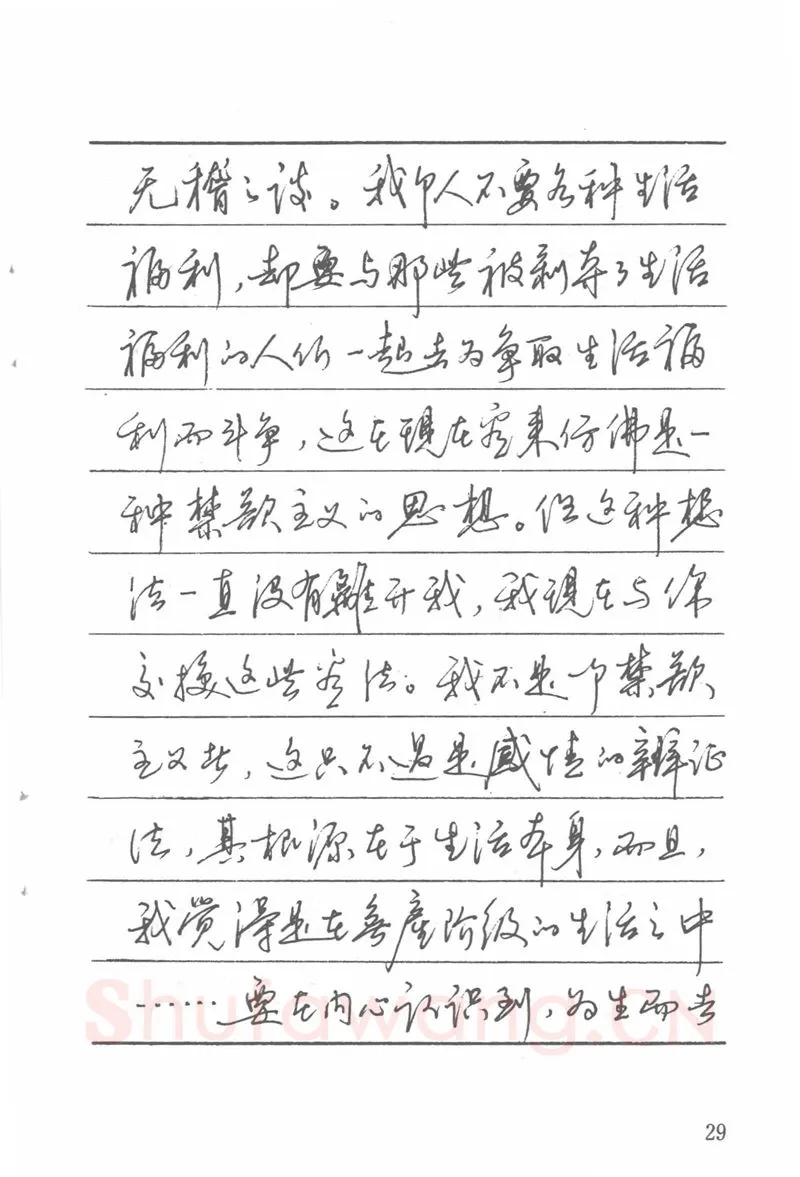 无稽之谈。我个人不要各种生活
福利，却要与那些被剥夺了生活
福利的人们一起去为争取生活福
利而斗争，这在现在看来仿佛是一
种禁欲主义的思想。但这种想
法一直没有離开我，我现在与你
交换这些看法。我不是一个禁欲
主义者，这只不过是感情的辩证
法，其根源在于生活本身，而且，
我觉得是在無産阶级的生活之中
……要在内心认识到，为生而去
Shufawang.CN
29